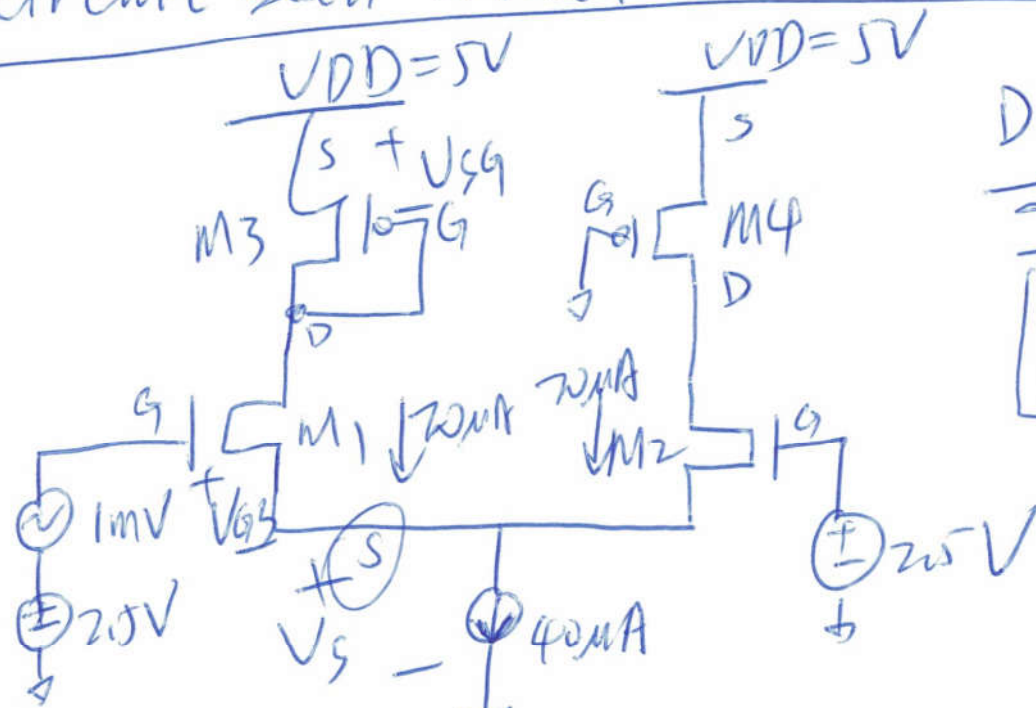 VDD=5V
VDD=5V
S + VSG
S
D
M3
G
G
M4
D
D
G
M1
20μA
20μA
M2
G
1mV
+
VGS
S
+
2.5V
VS
-
40μA
2.5V